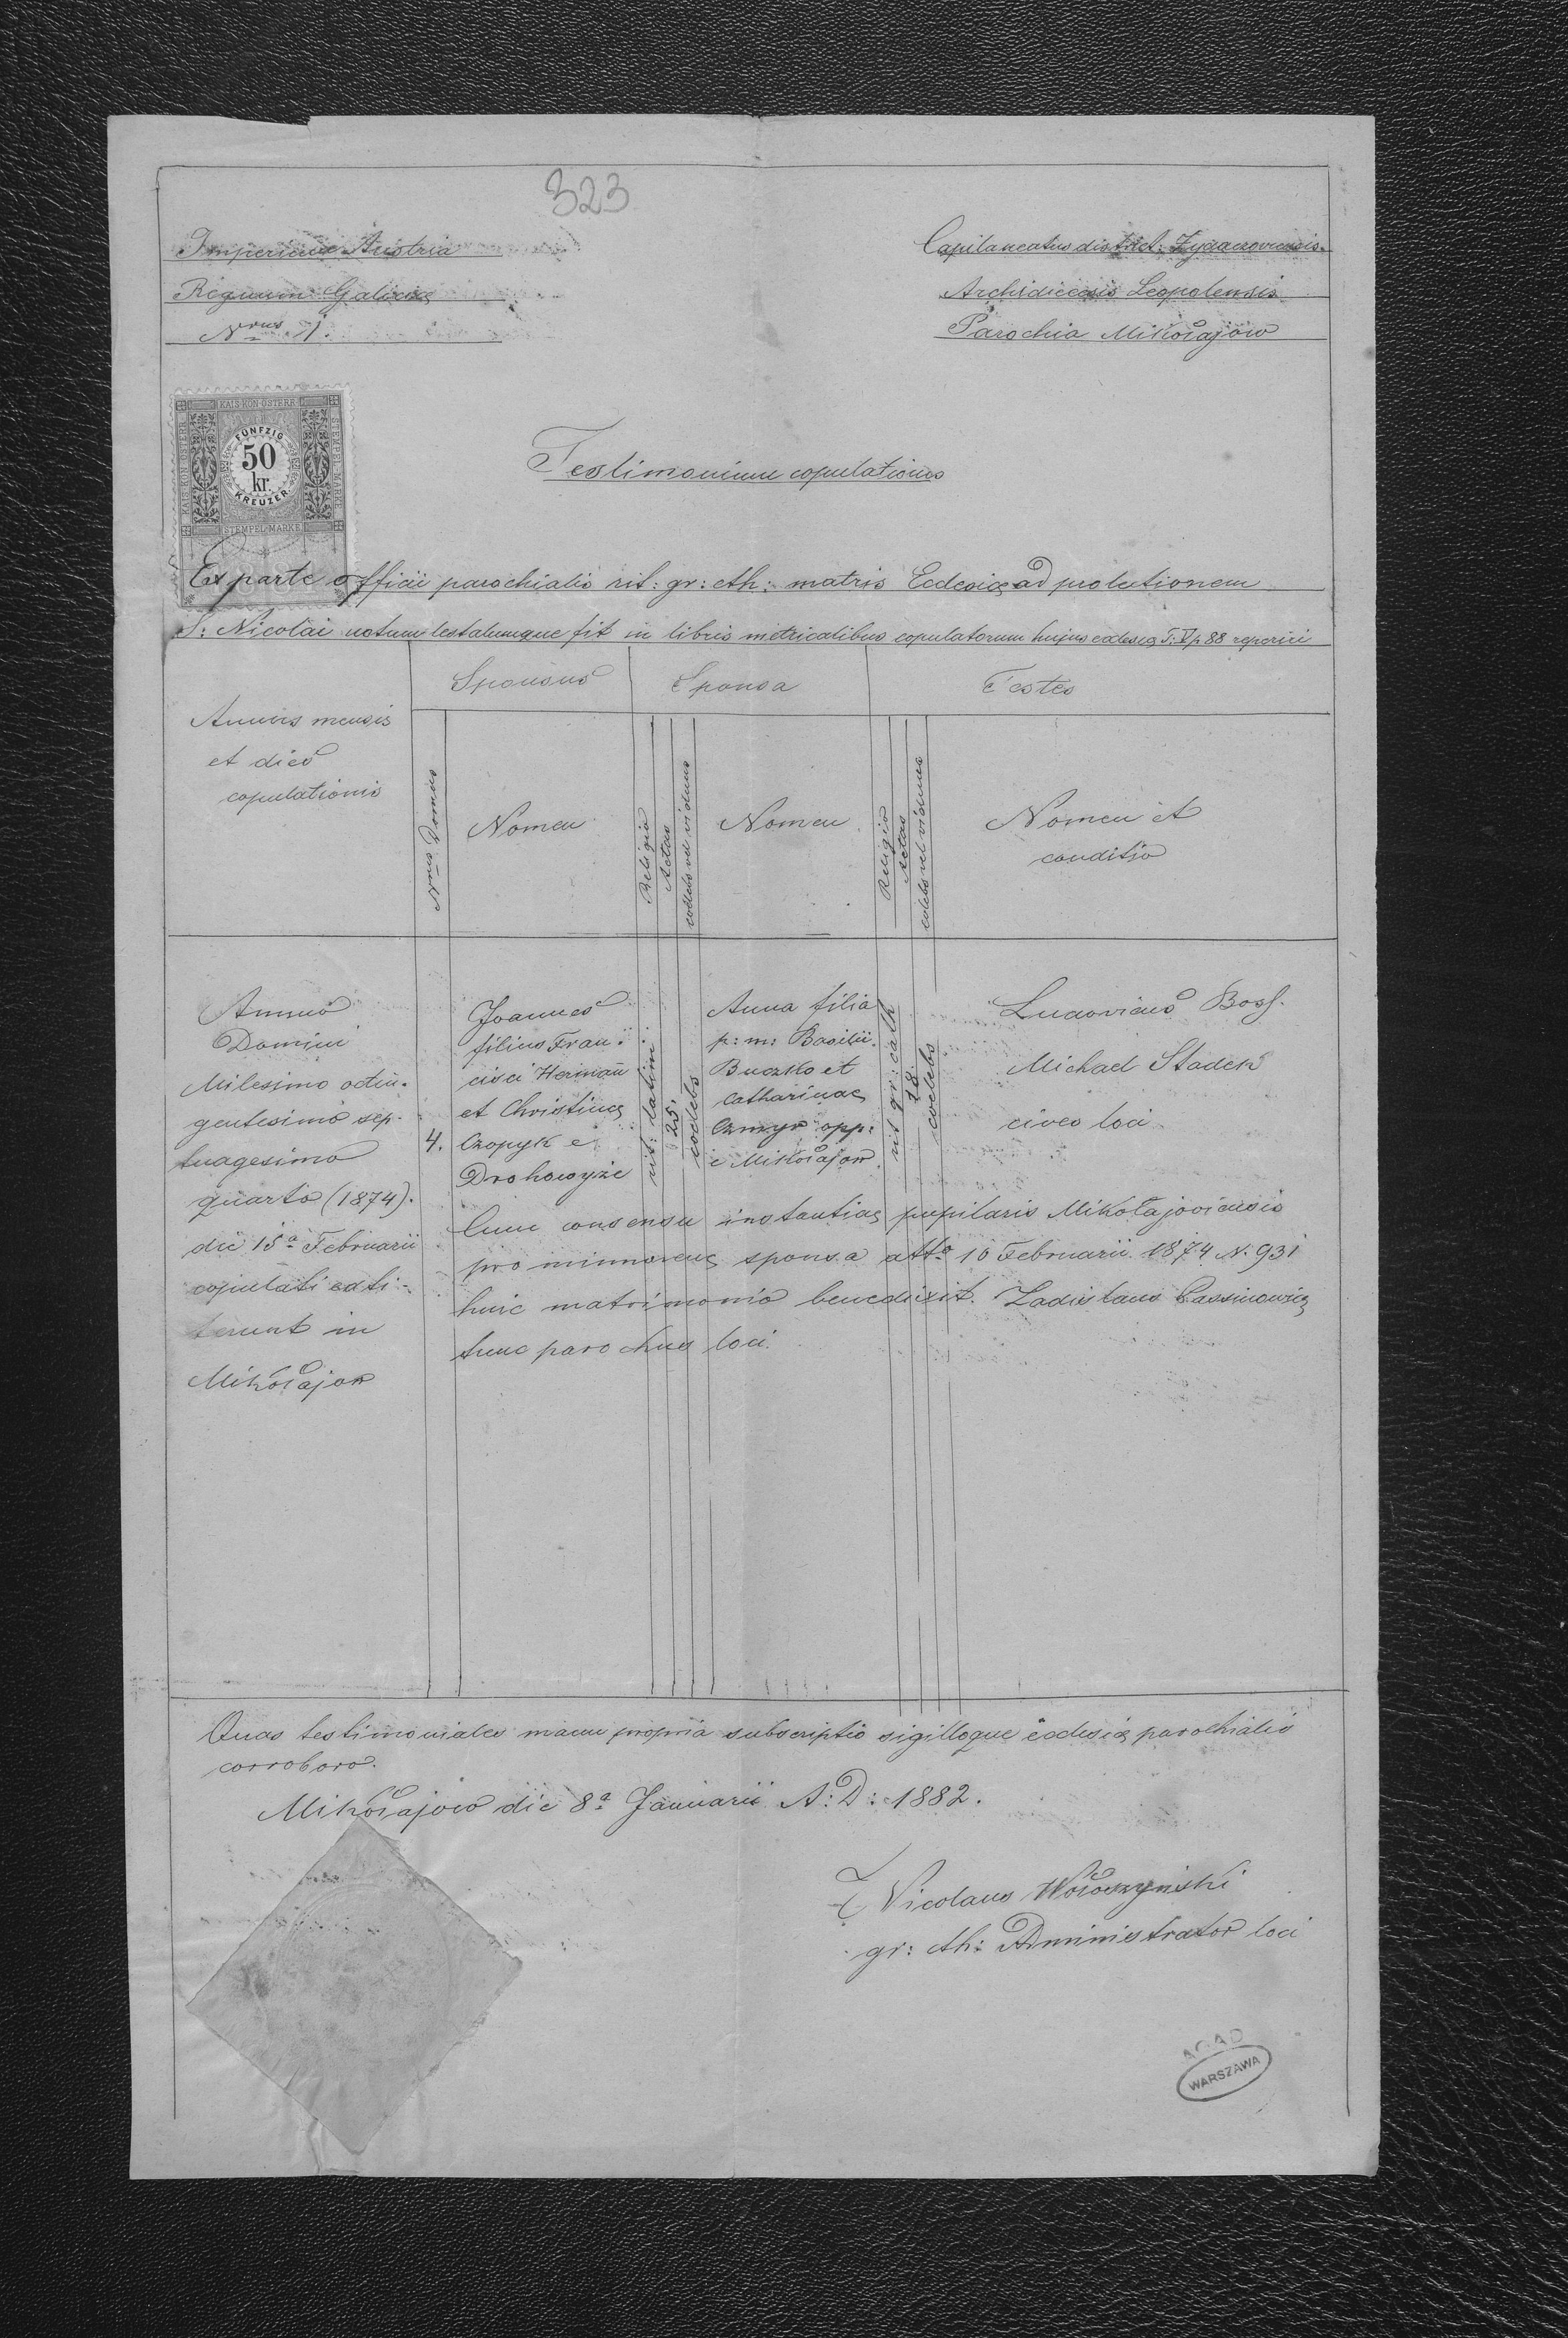 323
Imperium Austria
Regnum Galiciæ
Nrus 1.
Capitaneatus district: Zydaczoviensis.
Archidiecesis Leopolensis
Parochia Mikołajów
KAIS·KÖN·ÖSTERR
FÜNFZIG
50
kr.
KREUZER
STEMPEL-MARKE
Testimonium copulationis
Ex parte officii parochialis rit: gr: cth: matris Eclesiæ ad protectionem
S: Nicolai notum testatumque fit in libris metricalibus copulatorum hujus eclesiæ T: V p. 88 reperiri
Sponsus
Sponsa
Testes
Annus mensis
et dies
copulationis
Nrus Domus
Nomen
Religio
Aetas
coelebs vel viduus
Nomen
Religio
Aetas
coelebs vel viduus
Nomen et
conditio
Annno
Domini
Milesimo octin-
gentesimo sep-
tuagesimo
quarto (1874).
die 15ª Februarii
copulati exti-
terunt in
Mikołajow
4.
Joannes
filius Fran-
cisci Hermañ
et Christinæ
Czopyk e
Drohowyże
rit: latini
25.
coelebs
Anna filia
p: m: Basilii
Buczko et
Catharinae
Czmyr opp:
e Mikołajow
rit gr: cath
18.
coelebs
Ludovicus Bogf.
Michael Stadek
cives loci
Cum consensu instantiæ pupilaris Mikołajoviensis
pro minnorene sponsa atto 10 Februarii 1874 N. 931
huic matrimonio benedixit. Ladislaus
tunc parochus loci.
Quas testimoniales manu propria subscriptis sigilloque eclesiæ parochialis
corroboro.
Mikołajow die 8ª Januarii A: D: 1882.
Nicolaus Wołoszyński
gr: cth: Administrator loci
AGAD
WARSZAWA